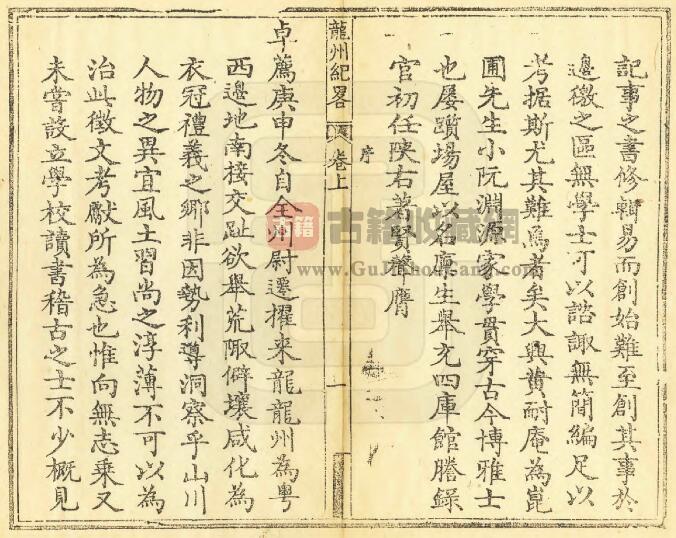 記事之書修輯易而創始難至創其事於
邊徼之區無學士可以諮諏無簡編足以
考据斯尤其難焉者矣大興黄耐庵為崑
圃先生小阮淵源家學貫穿古今博雅士
也屡躓場屋以名廪生舉充四庫館謄錄
官初任陝右著賢聲膺
序
龍州紀畧
卷上
一
卓薦庚申冬自全州尉遷擢来龍龍州為粤
西邊地南接交趾欲舉荒陬僻壤咸化為
衣冠禮義之鄉非因勢利導洞察乎山川
人物之異宜風土習尚之淳薄不可以為
治此徵文考獻所為急也惟向無志乘又
未嘗設立學校讀書稽古之士不少概見
古籍 古籍收藏網